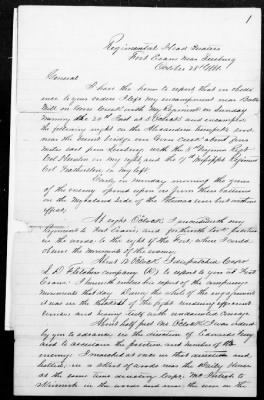 1
Regimental Head Quarters
Fort Evans near Leesburg
October 28th 1861.
General
I have the honor to report that in obedi-
ence to your orders I left my encampment near
Mill on Goose Creek with my Regiment on Sunday
morning the 20th Inst at 5 O'clock and encamped
the following night on the Alexandria turnpike road
near the burnt bridge over Goose Creek about four
miles east from Leesburg with the 8th Virginia Regt
Col Hunton on my right and the 17th Mississippi Regiment
Col Featherston on my left.
Early on Monday morning the guns
of the enemy opened upon us from their batteries
on the Maryland side of the Potomac river but without
effect.
At eight O'clock I marched with my
Regiment to Fort Evans, and forthwith took position
in the woods to the right of the Fort, where I could
observe the movements of the enemy.
At O'clock I dispatched Capt
L. D. Fletcher company (D) to report to you at Fort
Evans. I herewith enclose his report of the company
movements that day. During the whole of the engagement
it was in the thickest of the fight traversing different
directions and bearing itself with undaunted courage
At half past One O'clock I was ordered
by you to advance in the direction of Edwards Ferry
and to ascertain the position and number of the
enemy. I marched at once in that direction and
halted, in a skirt of woods near the Daily House
at the same time detaching Capt to
skirmish in the woods and near the river on the